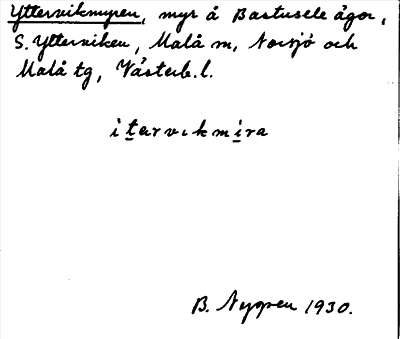 Yttervikmyren, myr å Bastusele ägor,
S. Ytterviken, Malå sn, Norsjö och
Malå tg, Västerb. l.
itərvıkmira
B. Nygren 1930.